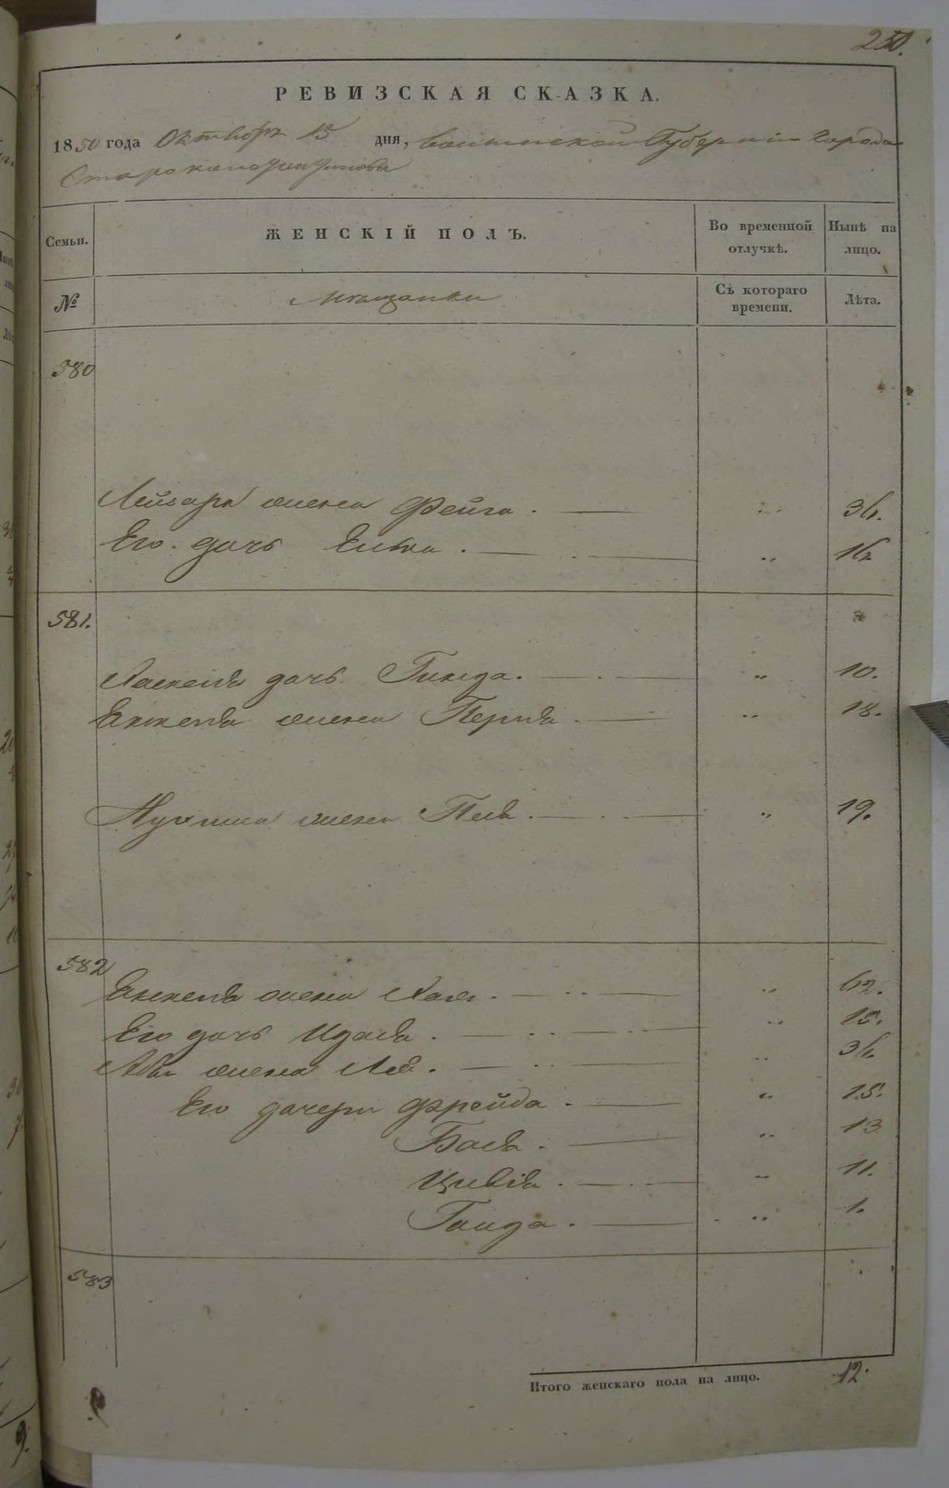 230.
РЕВИЗСКАЯ СКАЗКА.
1850 года Октября 15 дня, Волынской Губерніи Города
Староконстантинова
Семьи.
ЖЕНСКІЙ ПОЛЪ.
Во временной отлучкѣ.
Нынѣ на лицо.
№
Мѣщанки
Съ котораго времени.
Лѣта.
580
Лейзара жена Фейга. 36.
Его дочь 16
581.
Хаскеля дочь Гинда. 10.
Янкеля жена Перля. 18.
жена Песя. 19.
582
Янкеля жена Хая. 62.
Его дочь 15.
Абы жена Лея. 36.
Его дочери Фрейда. 15.
Бася. 13
Цивія. 11.
1.
583
Итого женскаго пола на лицо. 12.
9.